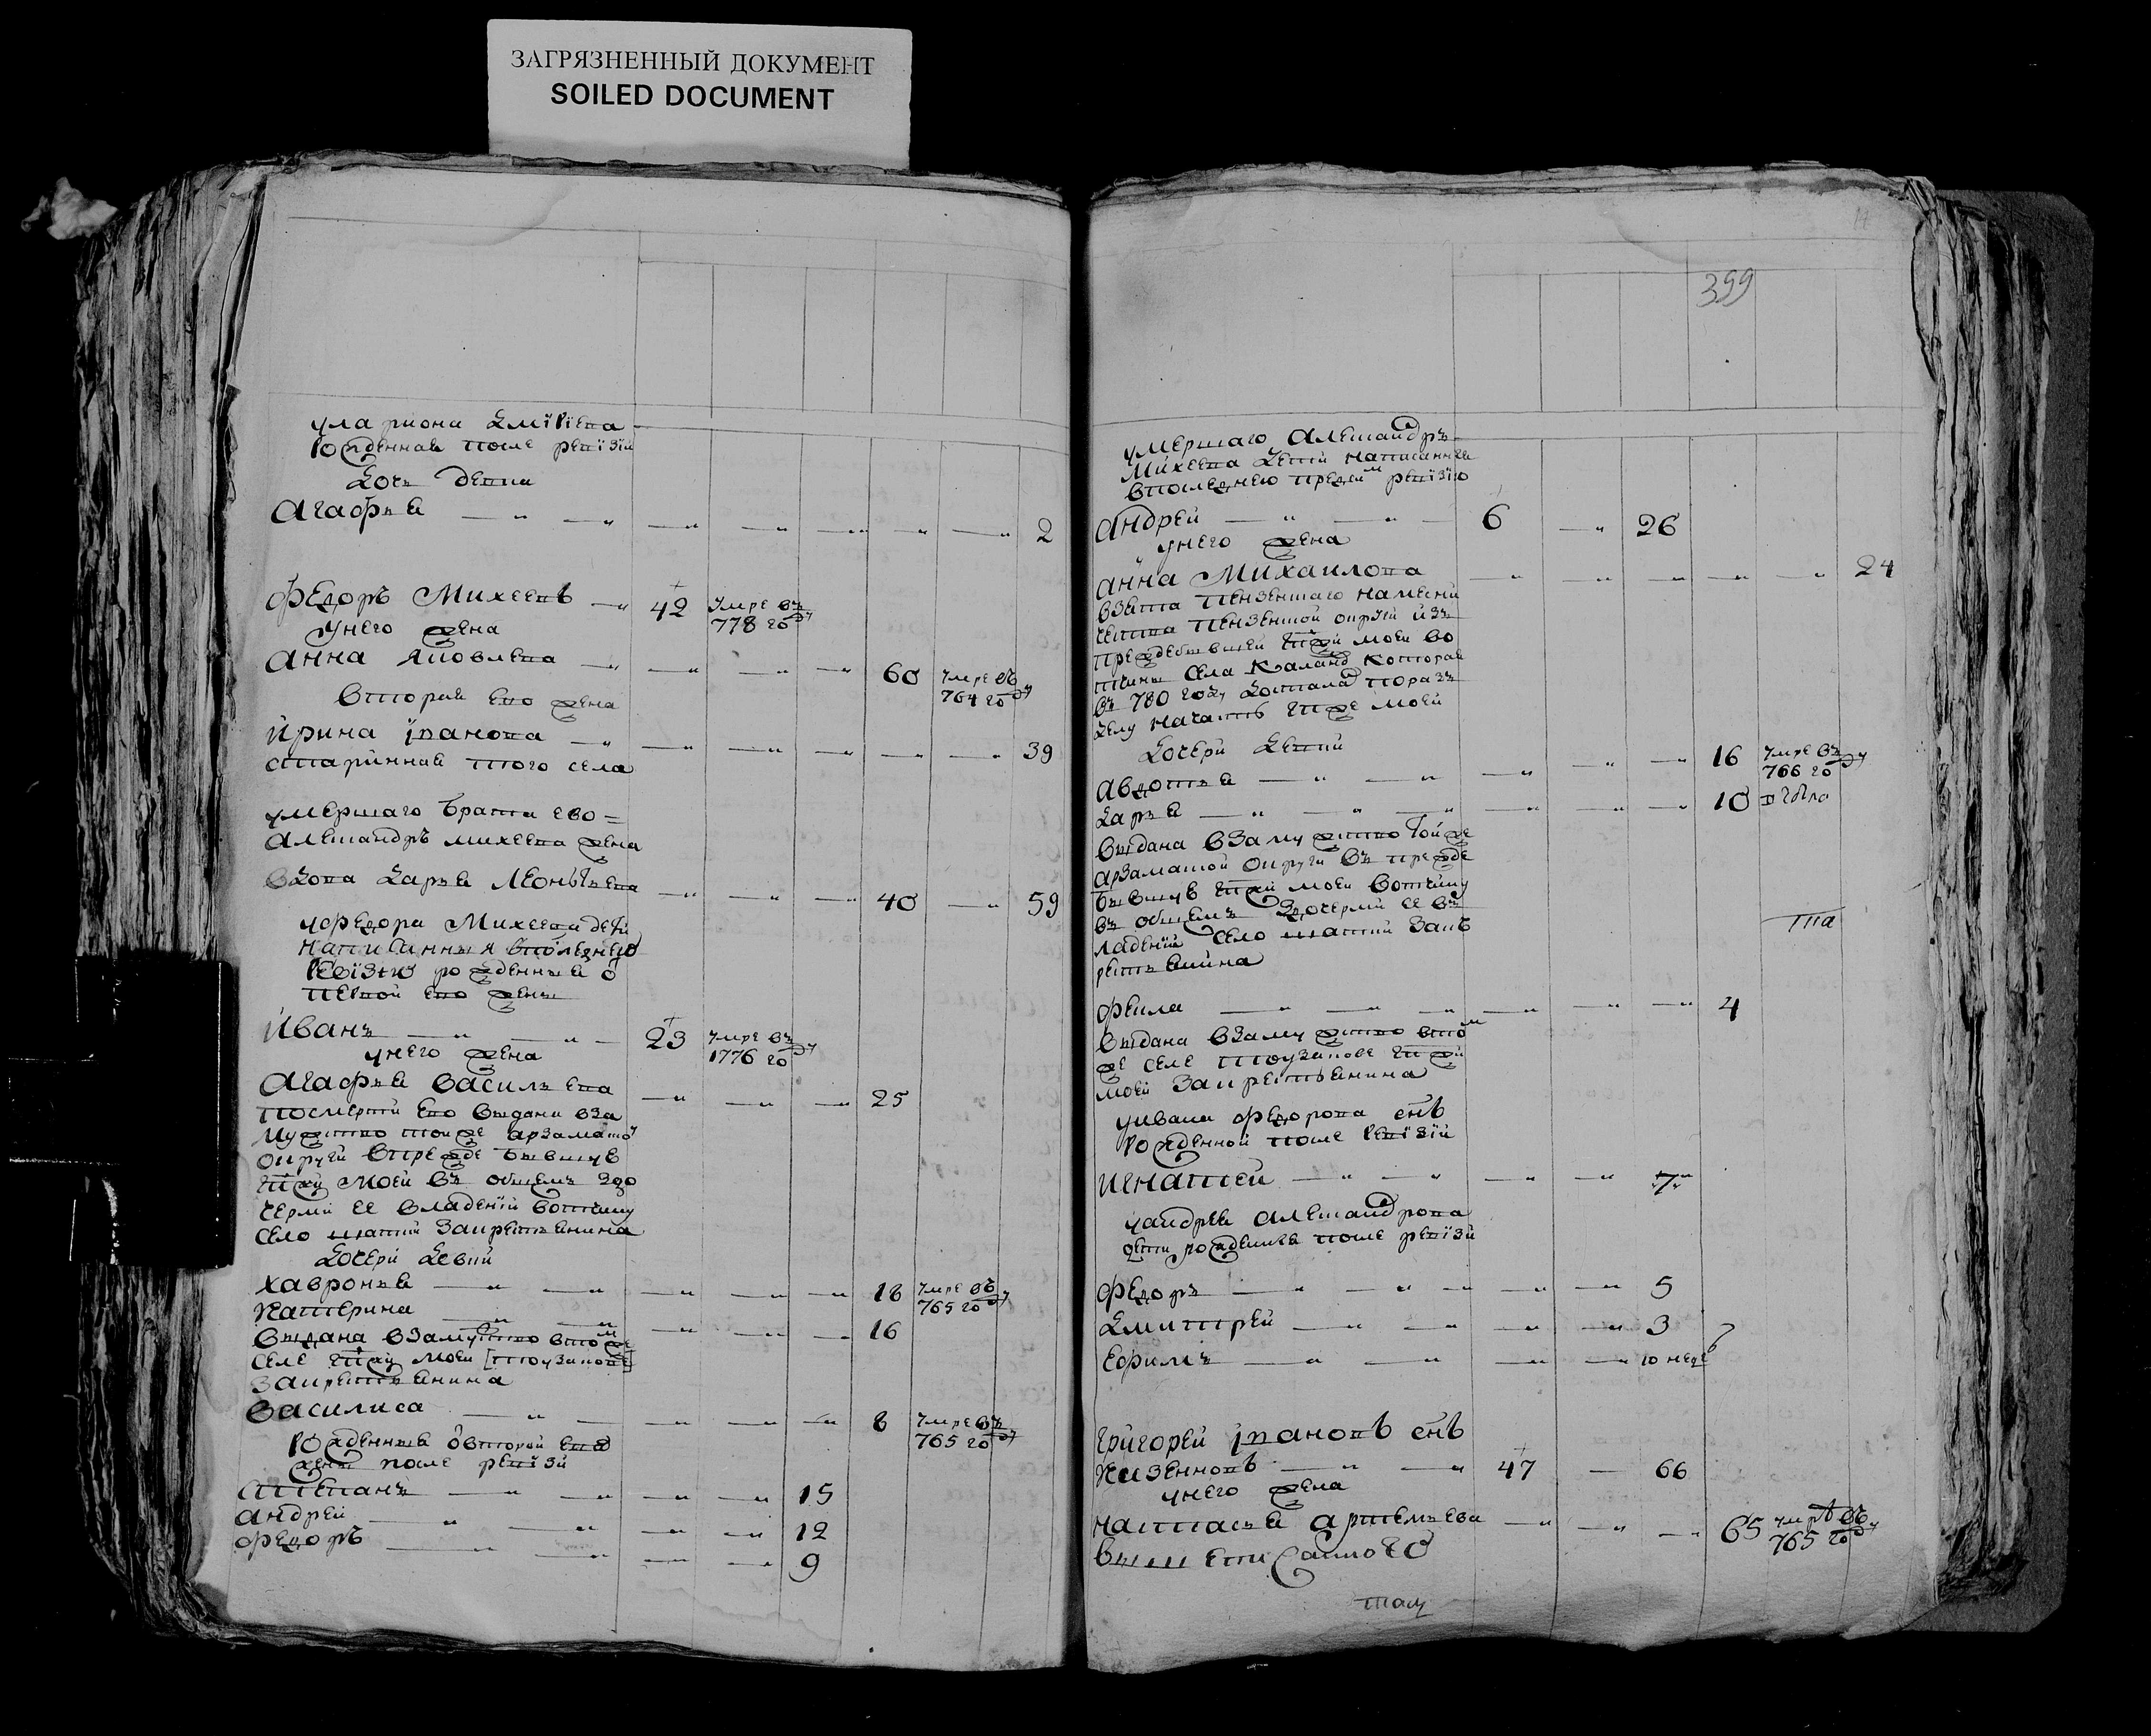 ЗАГРЯЗНЕННЫЙ ДОКУМЕНТ
SOILED DOCUMENT
рожденная после ревизїи
дочь девка
Агафья 2
Федоръ Михеевъ 42 умре въ
778 году
Унего жена
Анна Яковлева 60 умре въ
764 году
вторая ево жена
Ирина Iванова 39
старинная того села
умершаго брата ево =
Александръ михеева жена
вдова Дарья Леонтьева 40 59
уФедора Михеева дети
написанныя впоследнею
ревїзїю рожденныя о
первой ево жены
Иванъ 23 умре въ
1776 году
унего жена
Агафья Васильева 25
посмерти ево выдана вза
мужство тойже арзамаской
округи впрежде бывшую
моей въ общемъ здо
черми ее владенїи вотчину
село шатки закрестьянина
Дочери Девки
Хавронья 18 умре въ
765 году
Катерина 16
выдана взамужство втомже
селе моей
закрестьянина
Василиса 8 умре въ
765 году
рожденныя овторой ево
жены после ревїзїи
Степанъ 15
Андрей 12
Федоръ 9
399
умершаго Александръ
Михеева Дети написанные
впоследнею предъ ревїзїю
Андрей 6 26
унего жена
Анна Михаилова 24
взята пензенскаго намесни
чества пензенской округи изъ
прежде бывшей моеи во
тчины села которая
въ 780 году досталась поразъ
делу моей
Дочери Девки
Авдотья 16 умре въ
766 году
Дарья 10
выдана взамужство тойже
арзамаской округи въ прежде
бывшую моеи вотчину
въ общемъ здочерми ее въ
ладенїи село шатки закъ
рестьянина
та
Фекла 4
выдана взамужство втом
же селе
моеи закрестьянина
уивана Федорова снъ
рожденной после ревїзїи
Игнатей 7
уандрея Александрова
дети рожденые после ревїзїи
Федоръ 5
Дмитрей 3
Ефимъ 10 неде
Григорей Iвановъ снъ
47 66
унего жена
Настасья Артемьева 65 умре въ
765 году